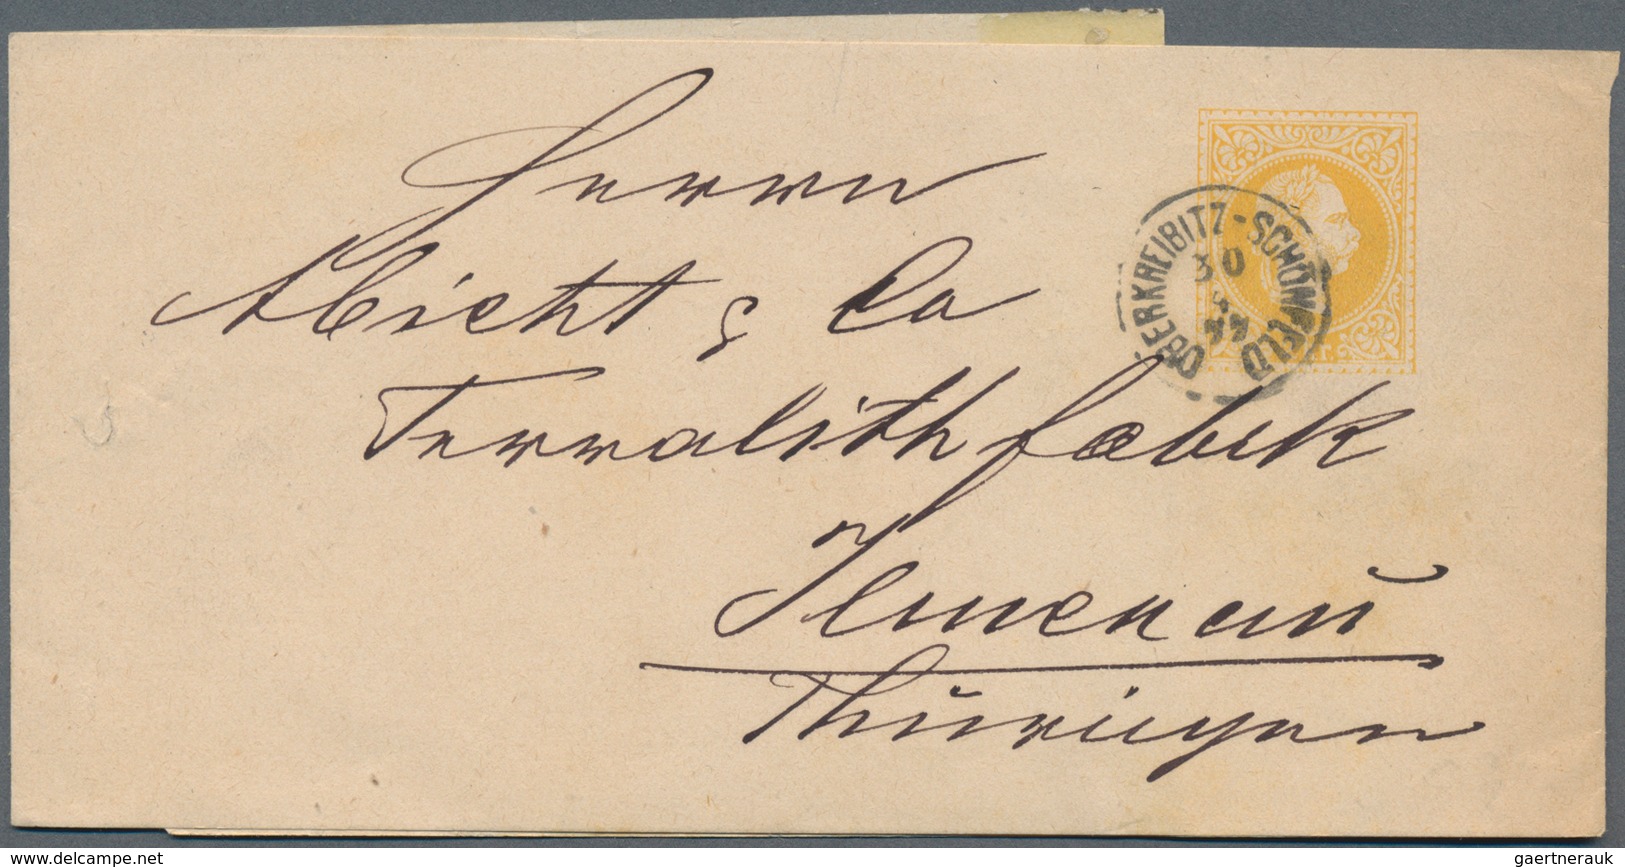 Herrn
Abicht & Co
Terralith fabrik
Ilmenau
Thüringen
OBERKREIBITZ-SCHÖNFELD
30
www.delcampe.net
gaertnerauk